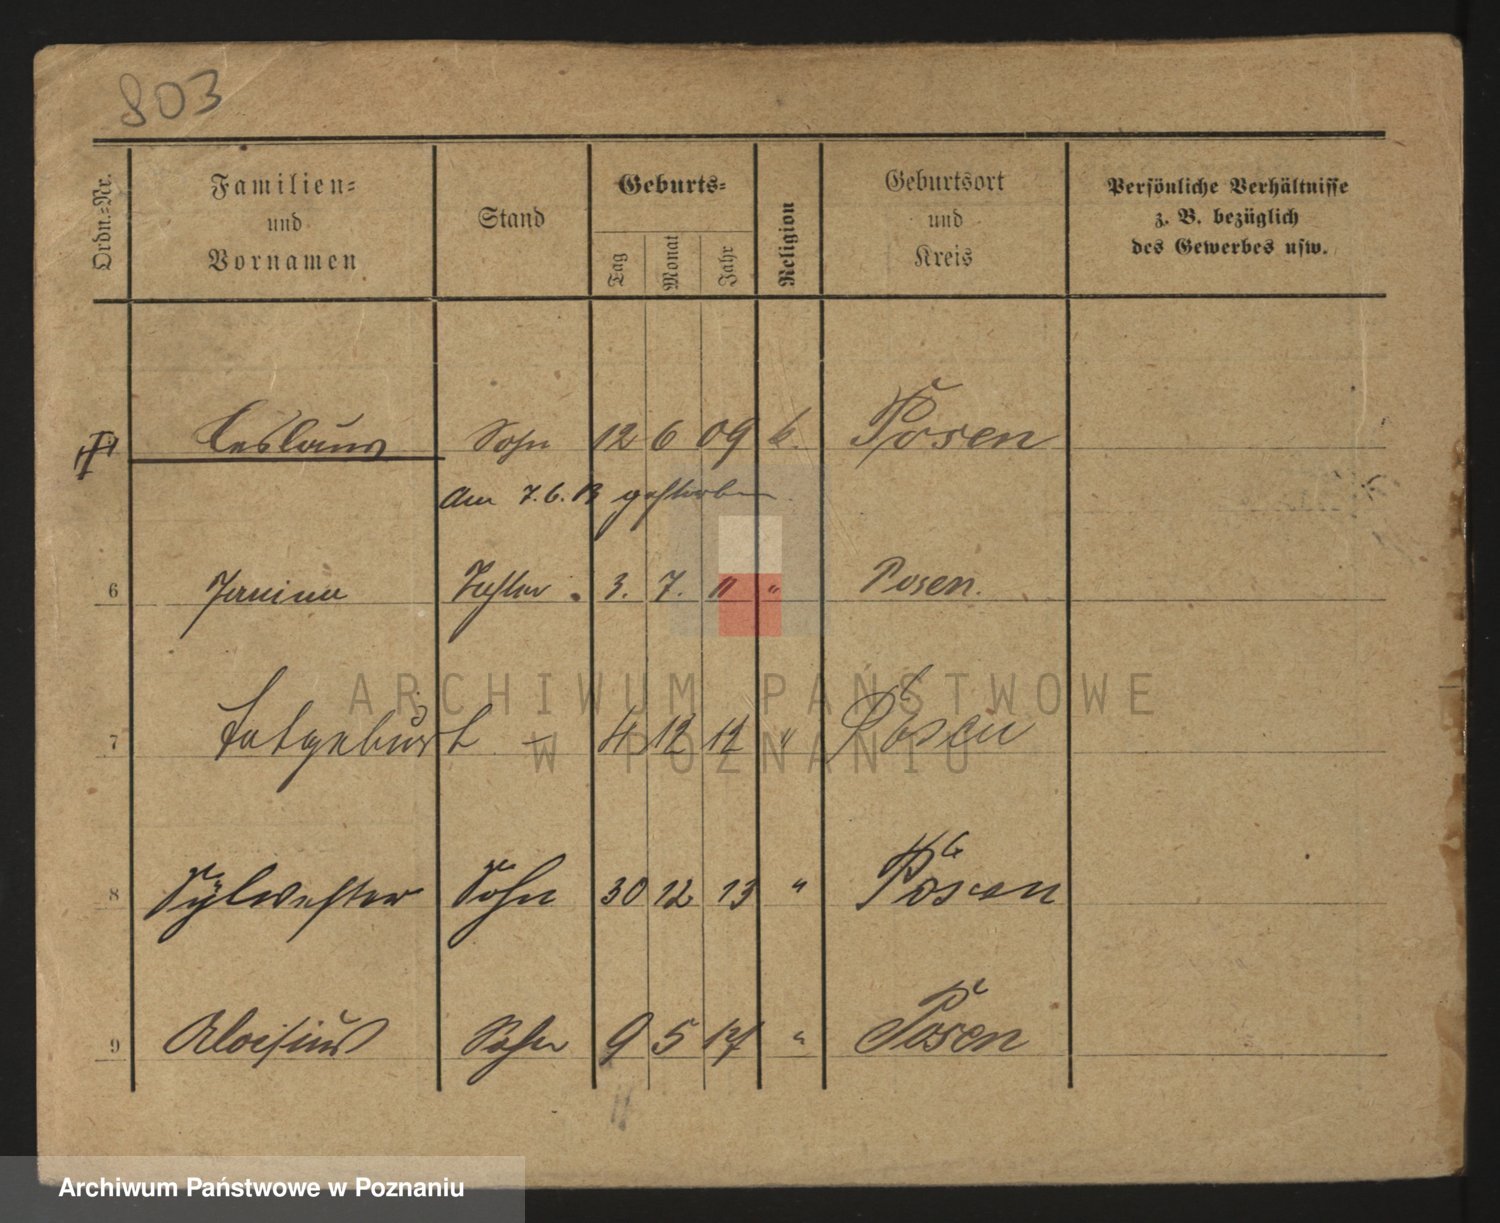 803
Ordn.=Nr. Familien= und Vornamen Stand Geburts= Tag Monat Jahr Religion Geburtsort und Kreis Persönliche Verhältnisse z. B. bezüglich des Gewerbes usw.
Ceslaus Sohn 12 6 09 k. Posen
am 7.6.13 gestorben.
6 Janina Tochter. 3. 7. 11 " Posen.
ARCHIWUM PAŃSTWOWE
7 Totgeburt – 4 12 12 " Posen
W POZNANIU
8 Sylwester Sohn 30 12 13 " Posen
9 Aloisius Sohn 9 5 17 " Posen
Archiwum Państwowe w Poznaniu